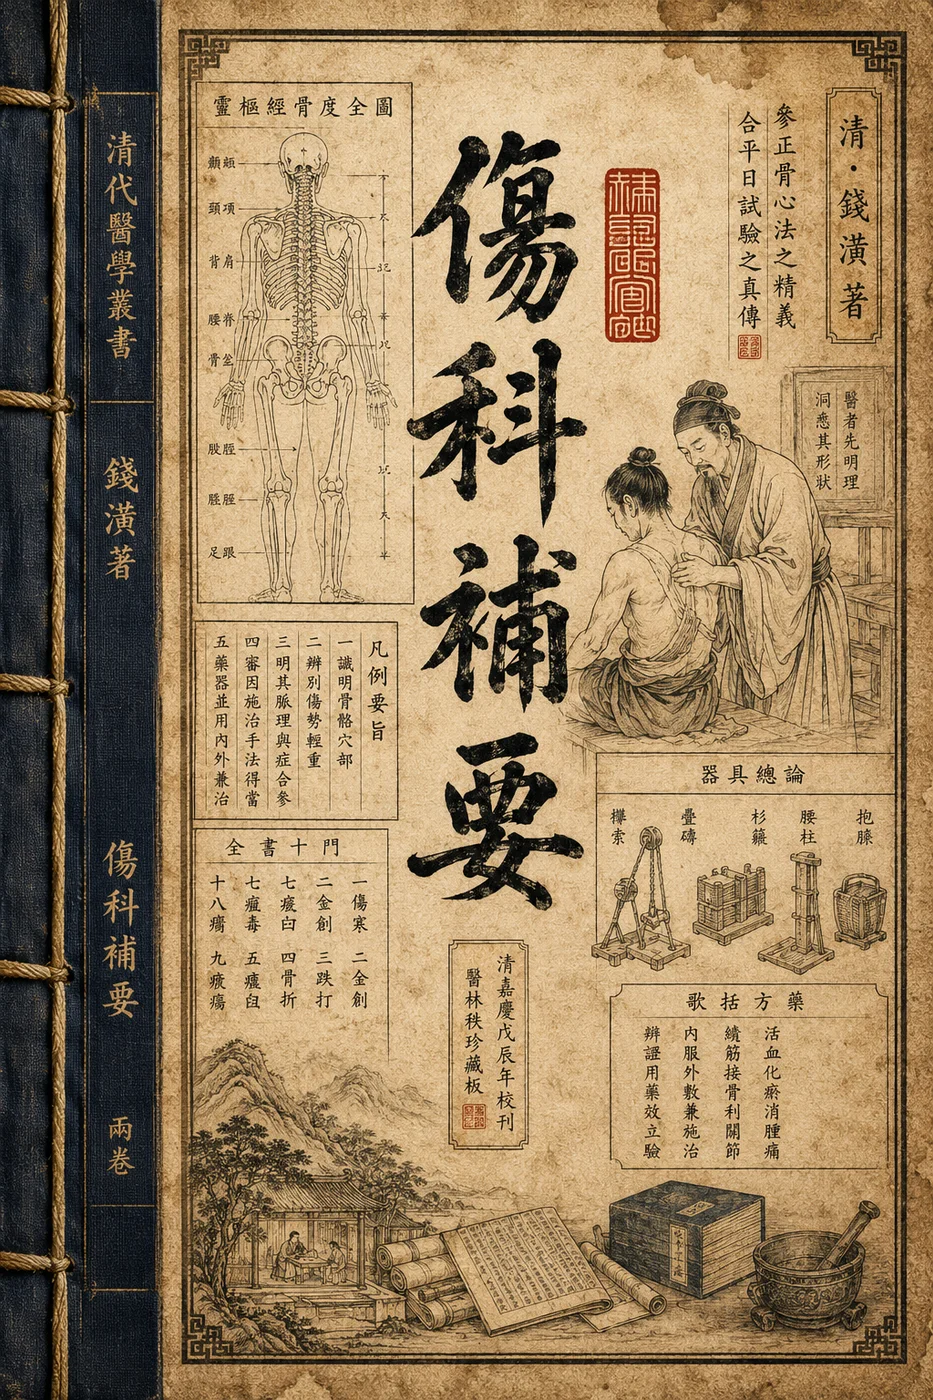 清代醫學叢書
錢潢著
傷科補要
兩卷
清·錢潢著
參正骨心法之精義
合平日試驗之真傳
傷科補要
靈樞經骨度全圖
顱頰
頸項
背肩
腰脊
骨坐
股脛
脛脛
足跟
醫者先明理
洞悉其形狀
凡例要旨
一識明骨骼穴部
二辨別傷勢輕重
三明其脈理與症合參
四審因施治手法得當
五藥器並用內外兼治
器具總論
攀索
疊磚
杉籬
腰柱
抱膝
全書十門
一傷寒 二金創
二金創 三跌打
七痠臼 四骨折
七瘟毒 五癰臼
十八瘍 九痠瘍
清嘉慶戊辰年校刊
醫林秩珍藏板
歌括方藥
活血化瘀消腫痛
續筋接骨利關節
內服外敷兼施治
辨證用藥效立驗